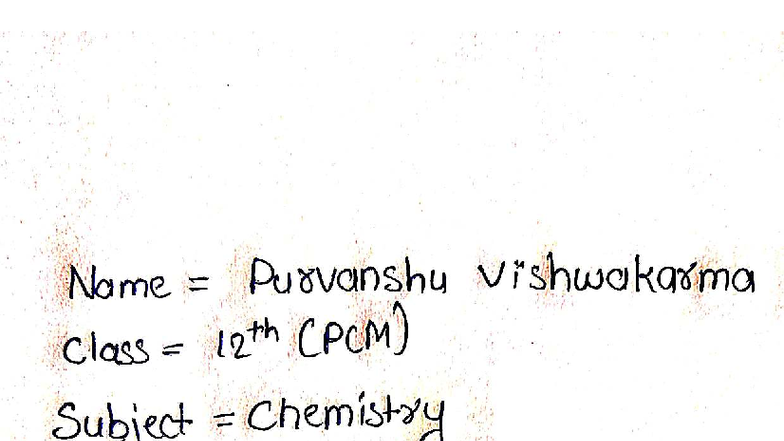 Name = Purvanshu Vishwakarma
Class = 12th (PCM)
Subject = Chemistry